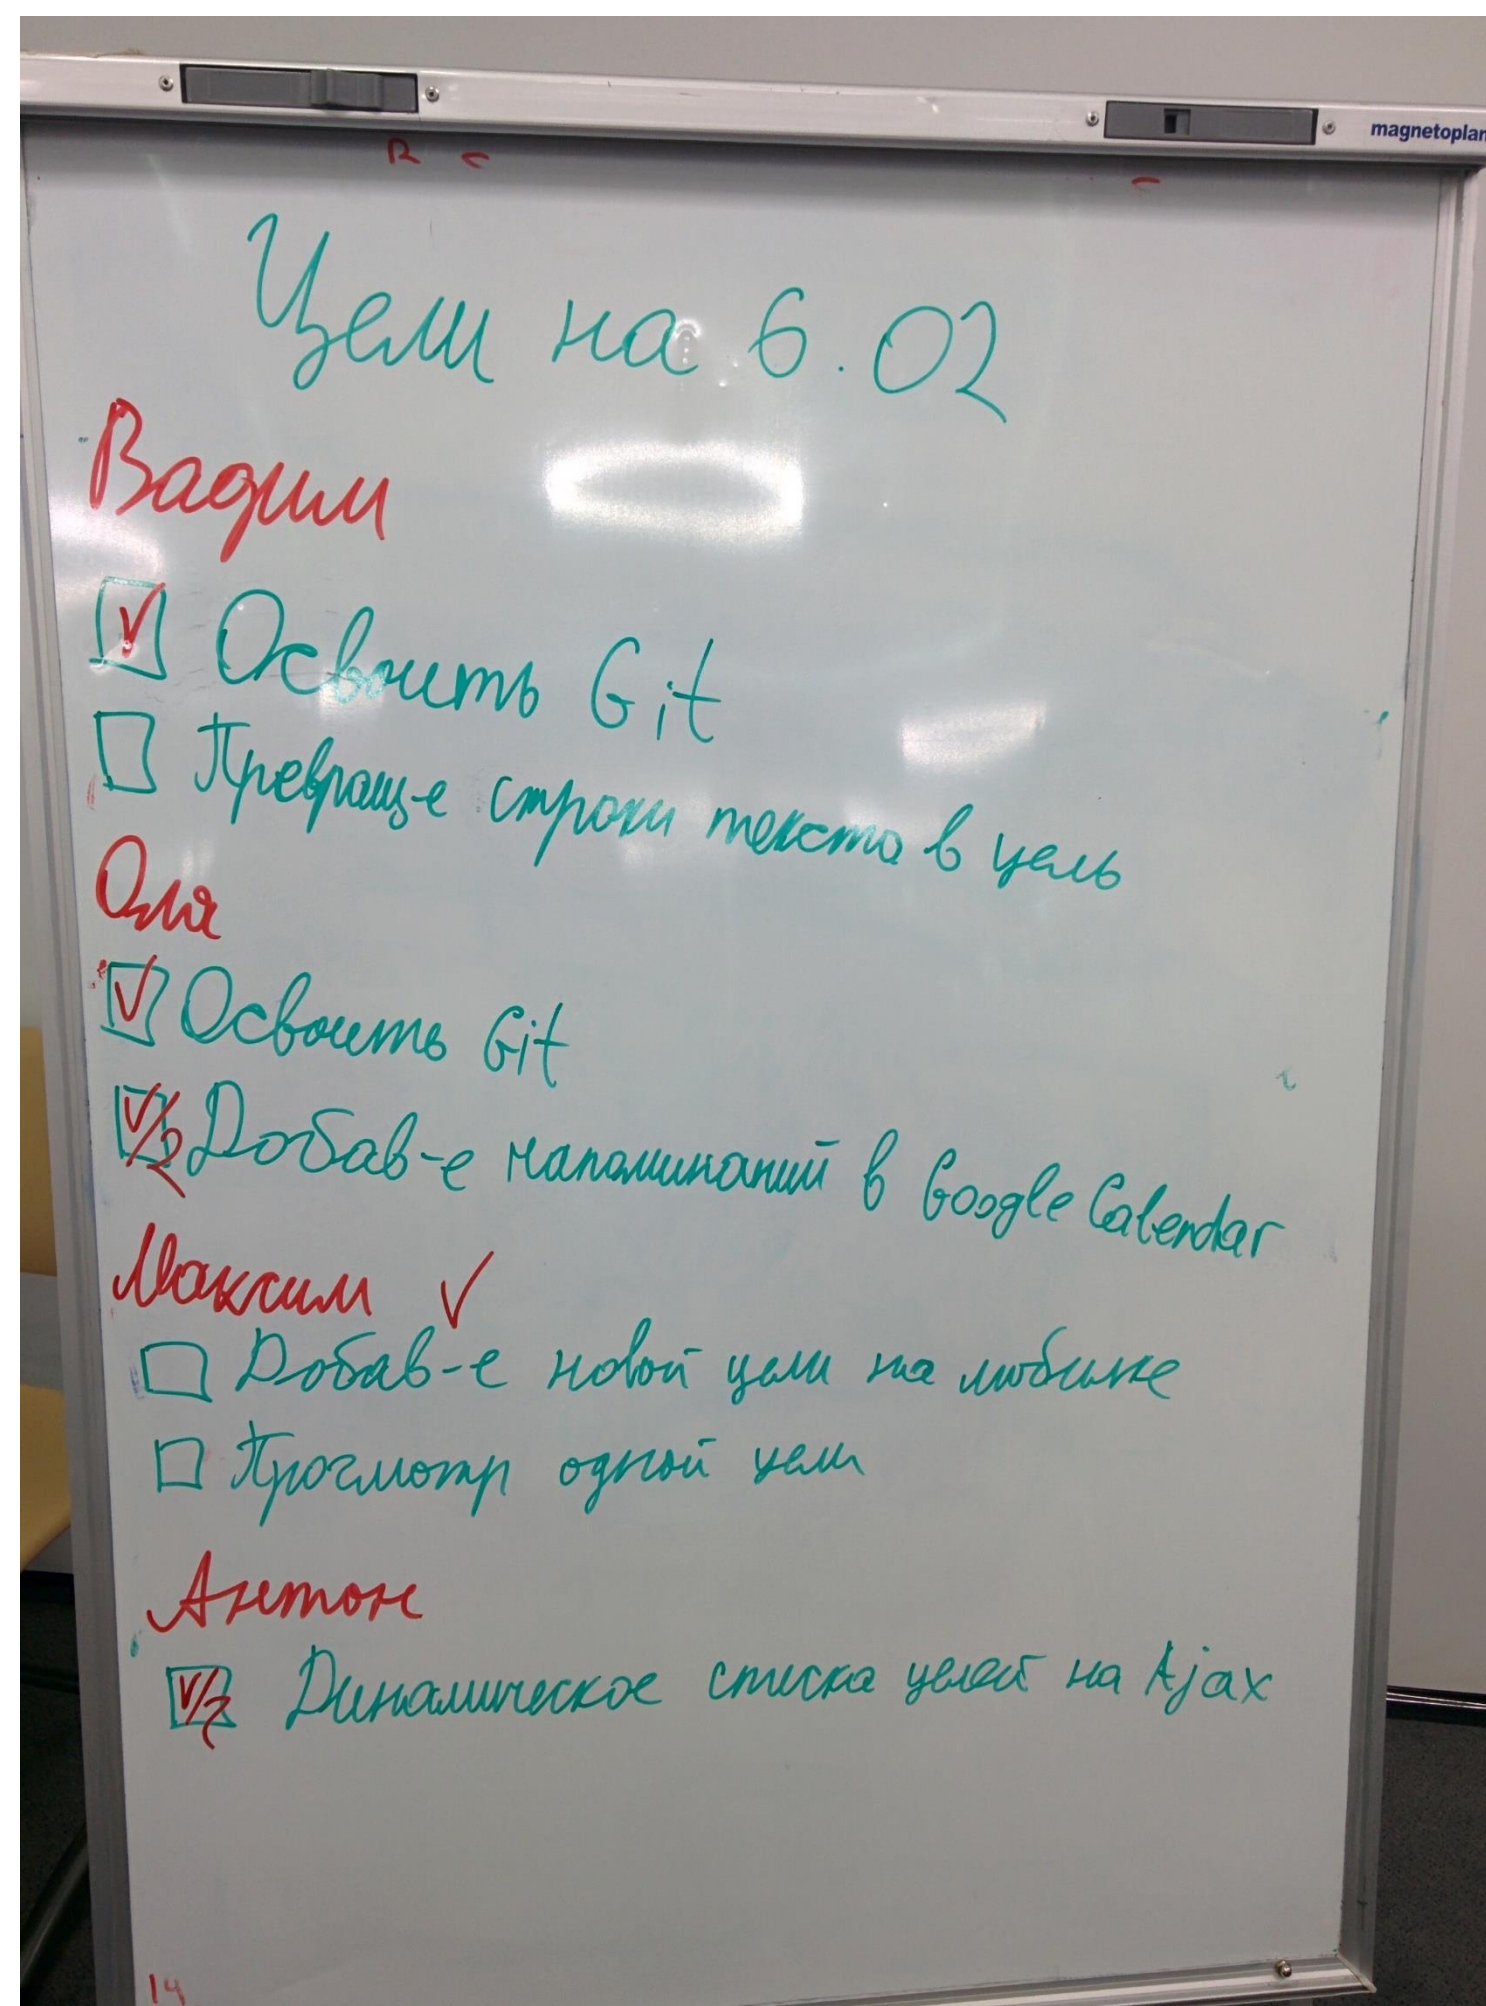 magnetoplan
Цели на 6.02
Вадим
Освоить Git
Превращ-е строки текста в цель
Оля
Освоить Git
V/2 Добав-е напоминаний в Google Calendar
Максим ✓
Добав-е новой цели на
Просмотр одной цели
Антон
V/2 Динамическое списка целей на Ajax
14